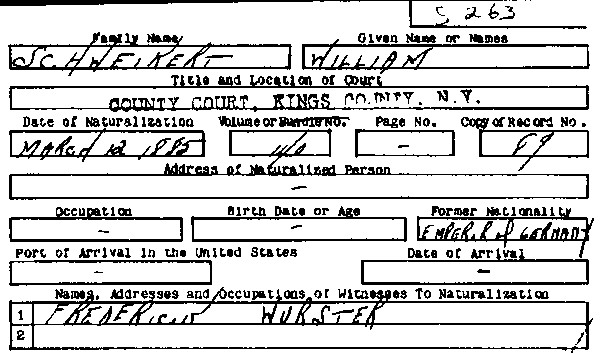 S 263
Family Name Given Name or Names
SCHWEIKERT WILLIAM
Title and Location of Court
COUNTY COURT, KINGS COUNTY, N.Y.
Date of Naturalization Volume or Bundle No. Page No. Copy of Record No.
MARCH 12 1885 - 89
Address of Naturalized Person
-
Occupation Birth Date or Age Former Nationality
- - EMPEROR of GERMANY
Port of Arrival in the United States Date of Arrival
- -
Names, Addresses and Occupations of Witnesses To Naturalization
1 FREDERICK WURSTER
2